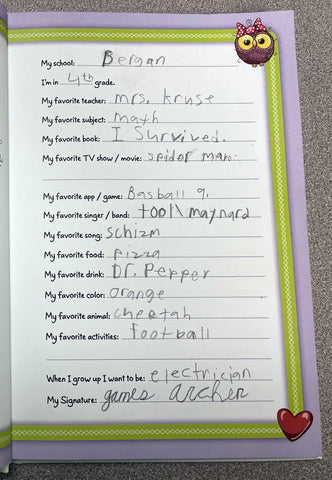 My school: Bergan
I'm in 4th grade.
My favorite teacher: mrs. kruse
My favorite subject: math
My favorite book: I Survived.
My favorite TV show / movie: spider man
My favorite app / game: Basball 9.
My favorite singer / band: tool\ maynard
My favorite song: schizm
My favorite food: pizza
My favorite drink: DR. Pepper
My favorite color: orange
My favorite animal: cheetah
My favorite activities: football
When I grow up I want to be: electrician
My Signature: games archer